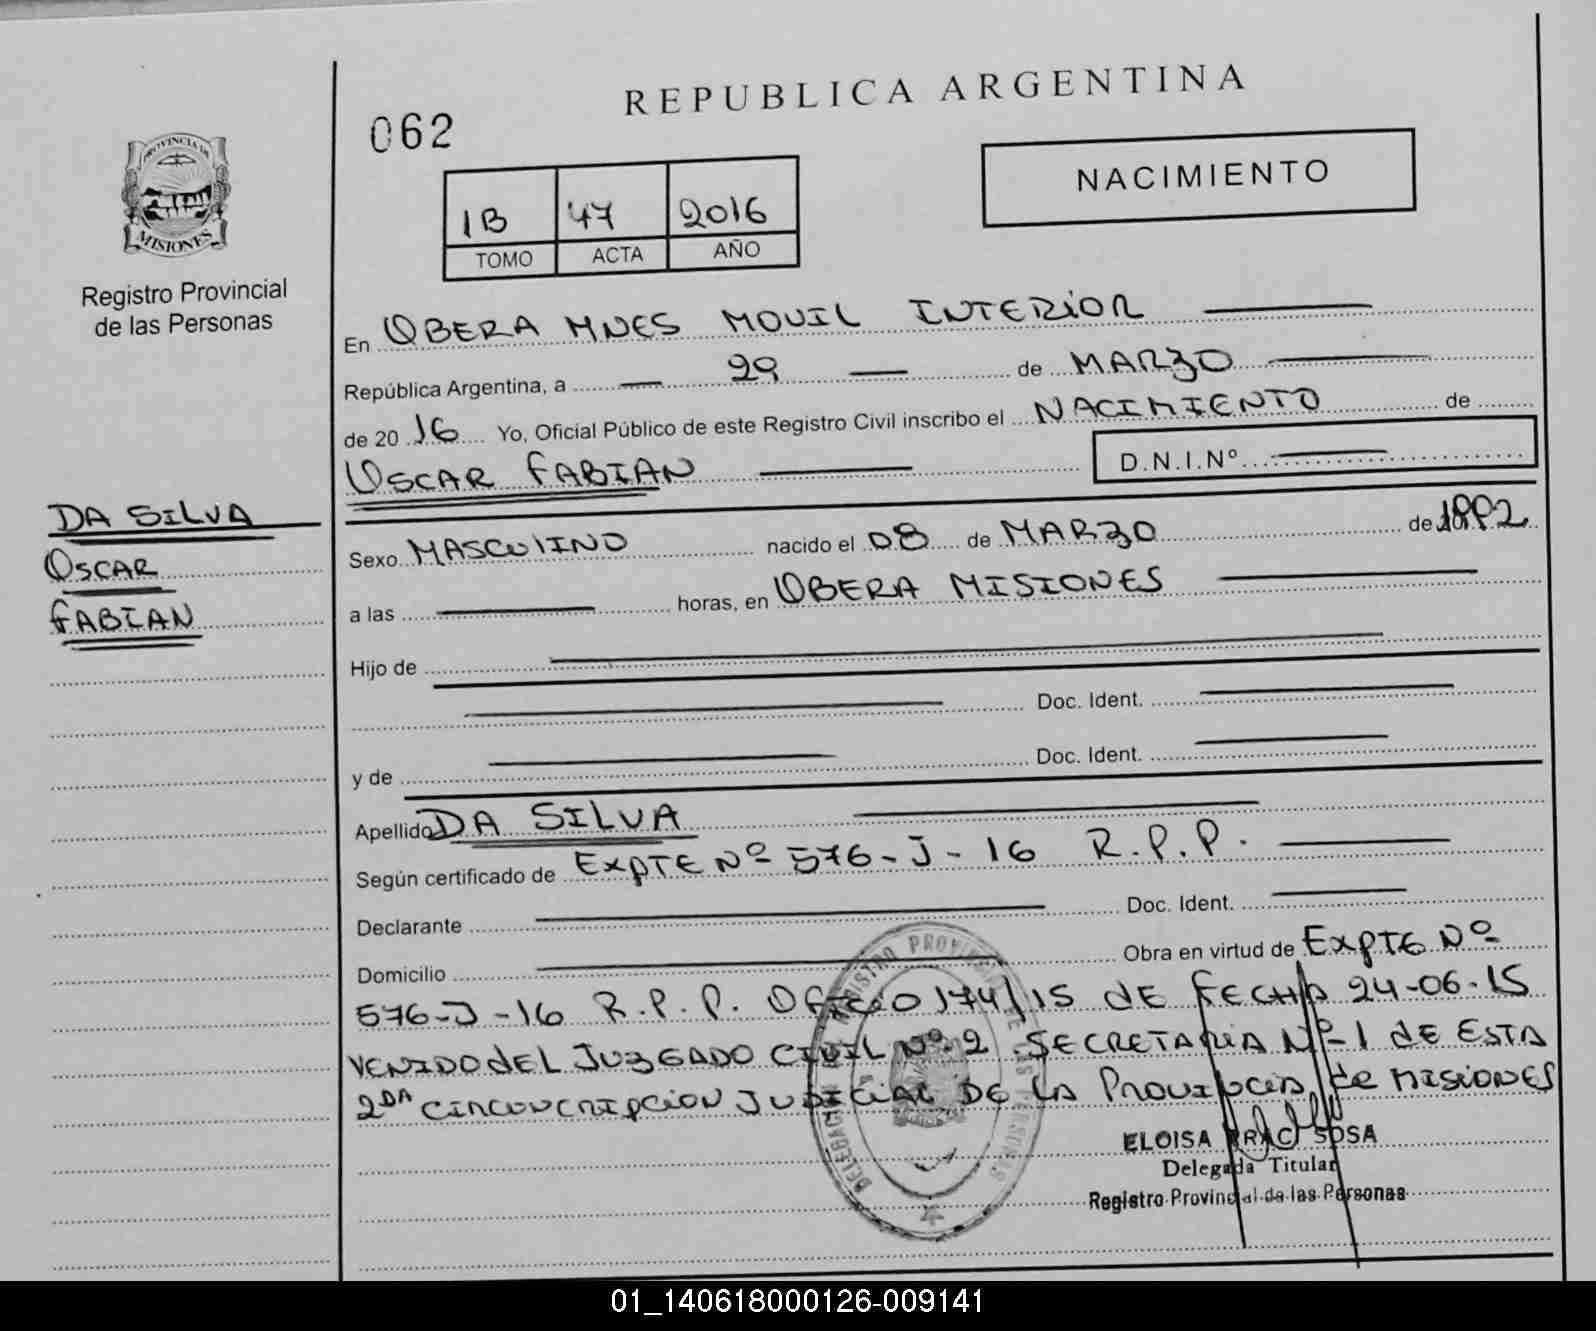 REPUBLICA ARGENTINA
062
PROVINCIA DE
MISIONES
Registro Provincial
de las Personas
NACIMIENTO
1B 47 2016
TOMO ACTA AÑO
En OBERA MNES MOVIL INTERIOR
República Argentina, a 29 de MARZO
de 20 16 Yo, Oficial Público de este Registro Civil inscribo el NACIMIENTO de
OSCAR FABIAN D.N.I.Nº
DA SILVA
OSCAR
FABIAN
Sexo MASCULINO nacido el 08 de MARZO de 1992
a las horas, en OBERA MISIONES
Hijo de
Doc. Ident.
y de Doc. Ident.
Apellido DA SILVA
Según certificado de EXPTE Nº 576-J-16 R.P.P.
Declarante Doc. Ident.
Domicilio Obra en virtud de EXPTE Nº
576-J-16 R.P.P. OFICIO 174/15 DE FECHA 24-06-15
VENIDO DEL JUZGADO CIVIL Nº 2 SECRETARIA Nº 1 DE ESTA
2DA CIRCUNCRIPCION JUDICIAL DE LA PROVINCIA DE MISIONES
ELOISA SOSA
Delegada Titular
Registro Provincial de las Personas
01_140618000126-009141